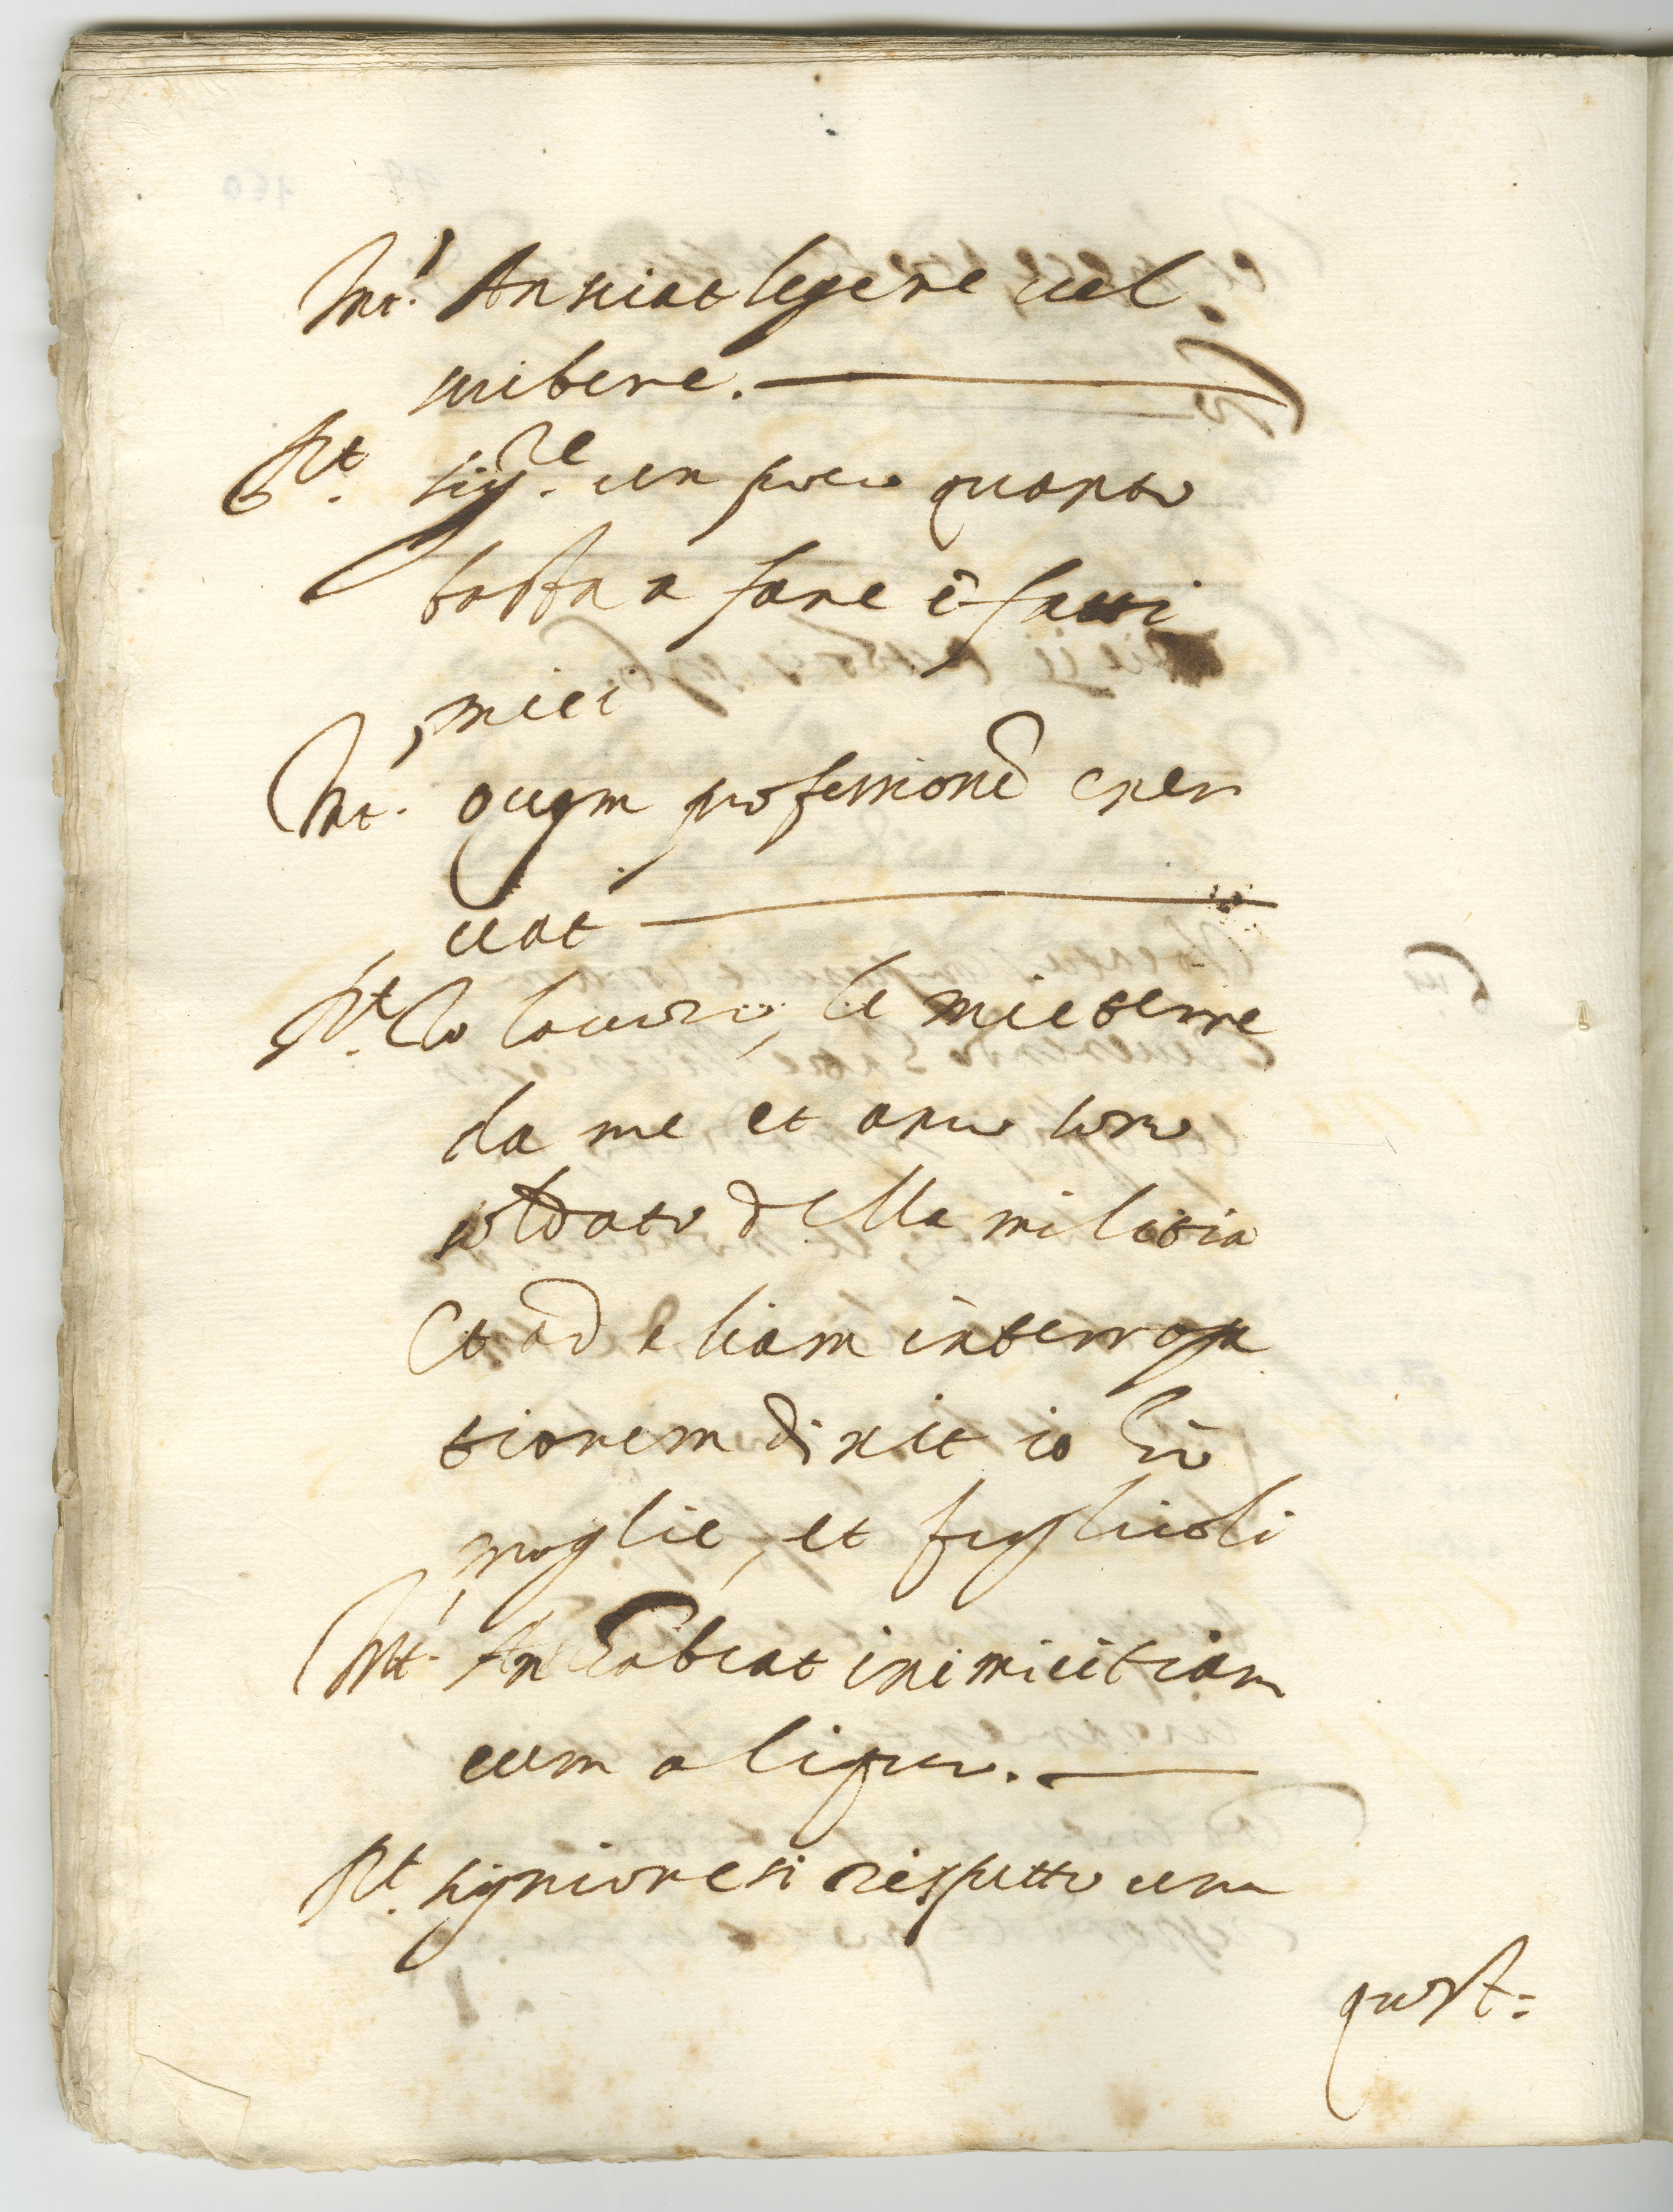 Int. An sciat legere vel
scribere.
Rt. Sig.re un poco quanto
basta a fare i fatti
miei
Int. quam professionem exer
ceat
Rt. Io lavoro le mie terre
da me et anco sono
soldato della militia
Et ad aliam interroga
tionem dixit io hò
moglie, et figliuoli
Int. An habeat inimicitiam
cum aliquo.
Rt. Signiore si rispetto un
quest: